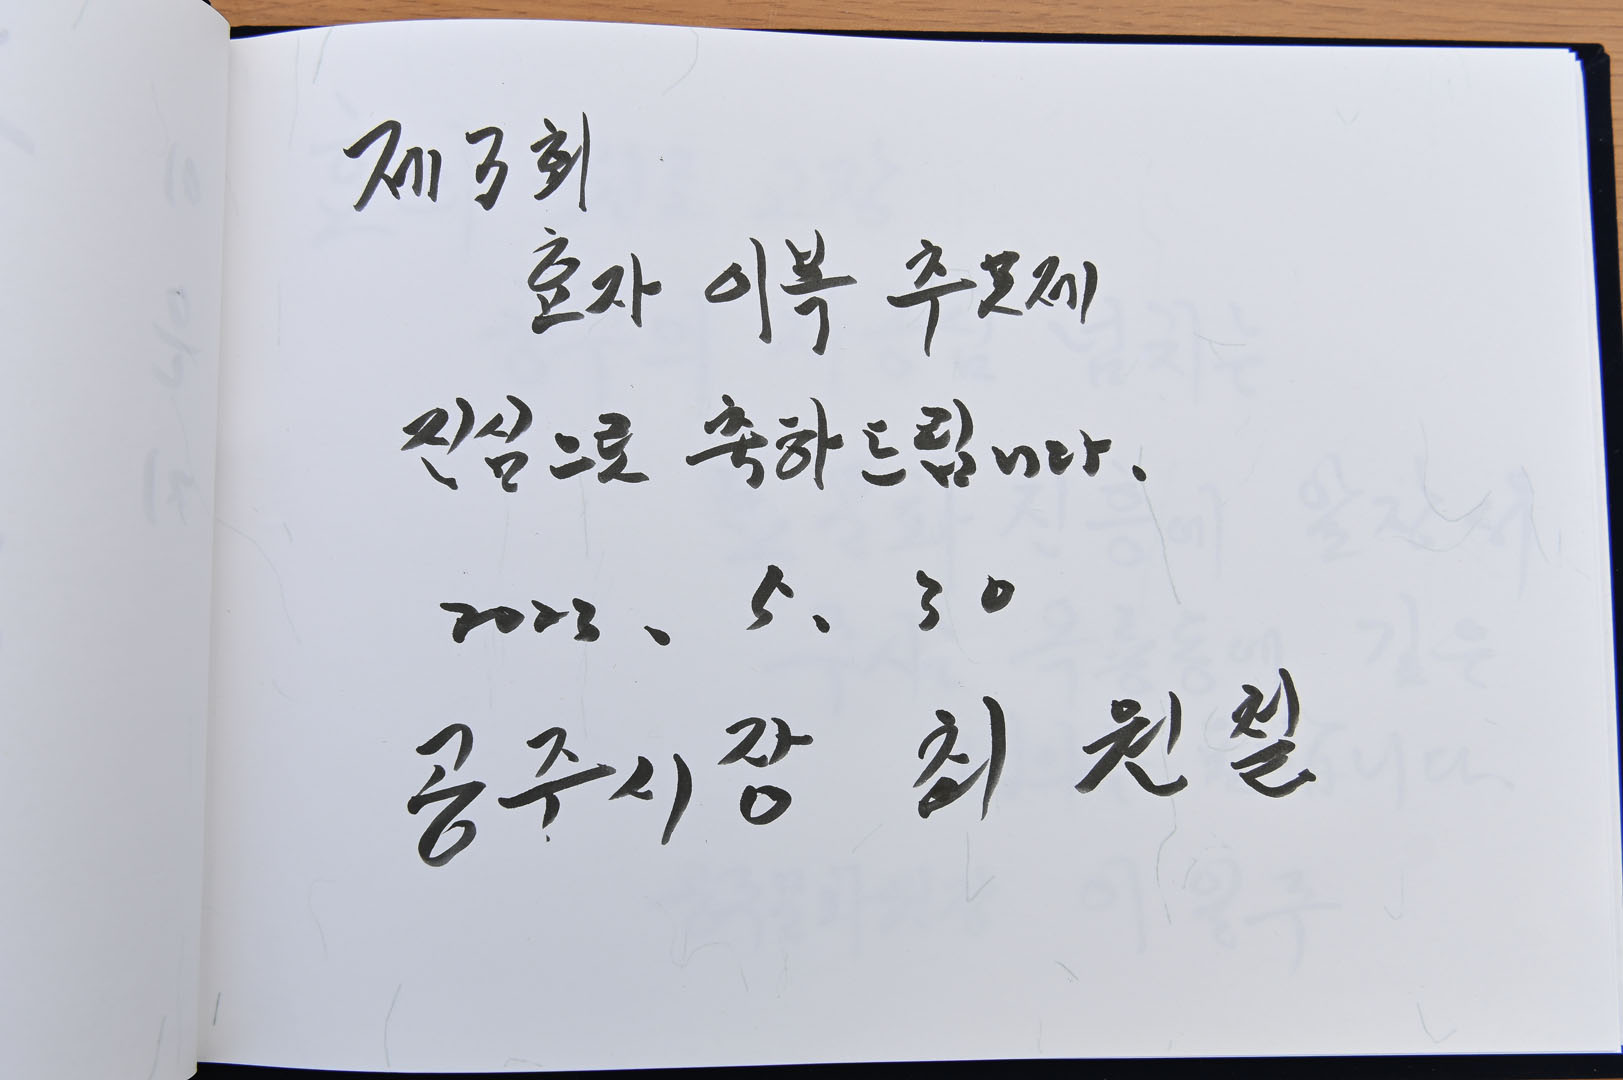 제3회
효자 이복 추모제
진심으로 축하드립니다.
2023. 5. 30
공주시장 최원철